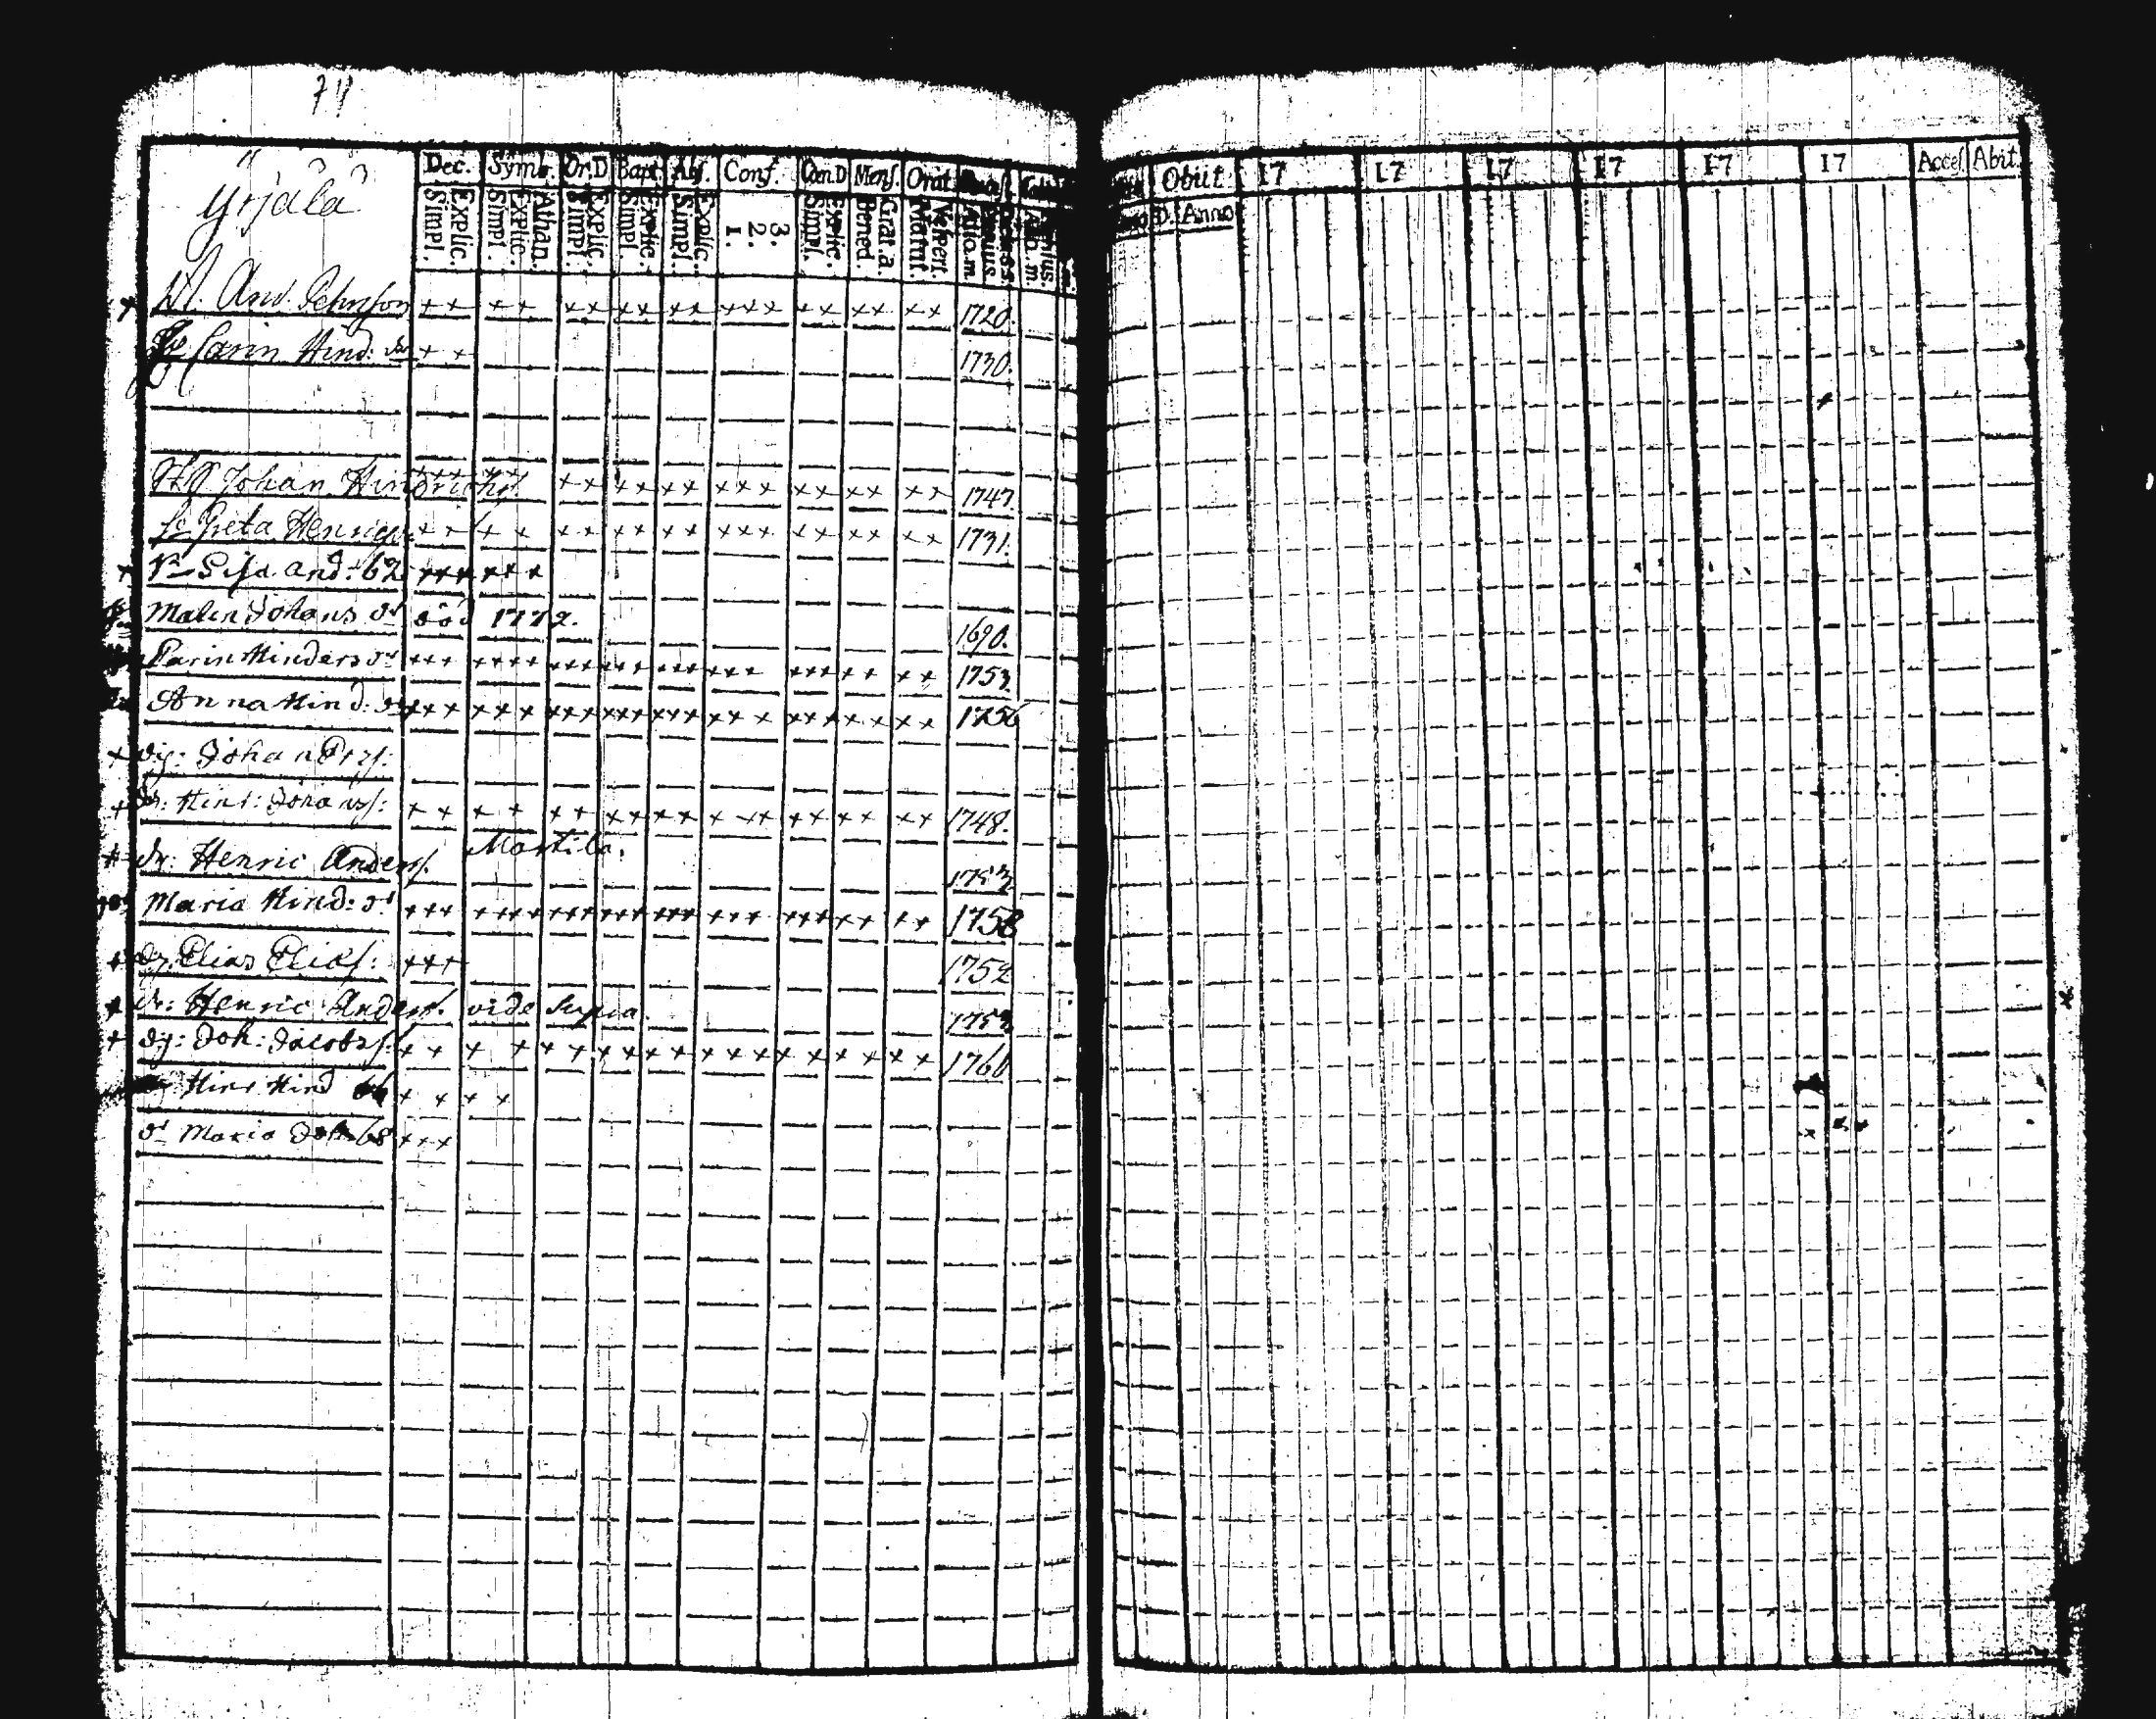 Yrjälä
Dec. Symb. Or.D Bapt. Abs. Conf. Cœn.D Mens. Orat.
Simpl. Explic. Simpl. Explic. Athan. Simpl. Explic. Simpl. Explic. Simpl. Explic. 1. 2. 3. Simpl. Explic. Bened. Grat. a. Matut. Vespert.
Obiit 17 17 17 17 17 17 Acces Abit.
D. Anno
And. Johnsson ++ ++ ++ ++ ++ +++ ++ ++ ++ 1720.
Carin Hind: dr + + 1730.
Johan Hindrichs. ++ ++ ++ +++ ++ ++ ++ 1747.
Greta Henrics ++ ++ ++ ++ ++ +++ ++ ++ ++ 1731.
+ Lisa And: 62 +++ +++
Malin Johans dr död 1772. 1690.
Carin Hinders dr +++ ++++ +++ +++ +++ +++ +++ ++ ++ 1753.
Anna Hind: dr +++ +++ +++ +++ +++ +++ +++ ++ ++ 1756
+ dg: Johan Ers:
+ dr: Hinr: Johanss: ++ ++ ++ ++ ++ +++ ++ ++ ++ 1748.
Martila.
dr: Henric Anders.
Maria Hind: dr +++ ++++ +++ +++ +++ +++ +++ ++ ++ 1758
+ Elias Elias: +++ 1752
+ dr: Henric Anders. vide supra.
+ dg: Joh: Jacobss: ++ ++ ++ ++ ++ +++ ++ ++ ++ 1760
Hinr Hind ++ ++
dr Maria Joh 68 +++